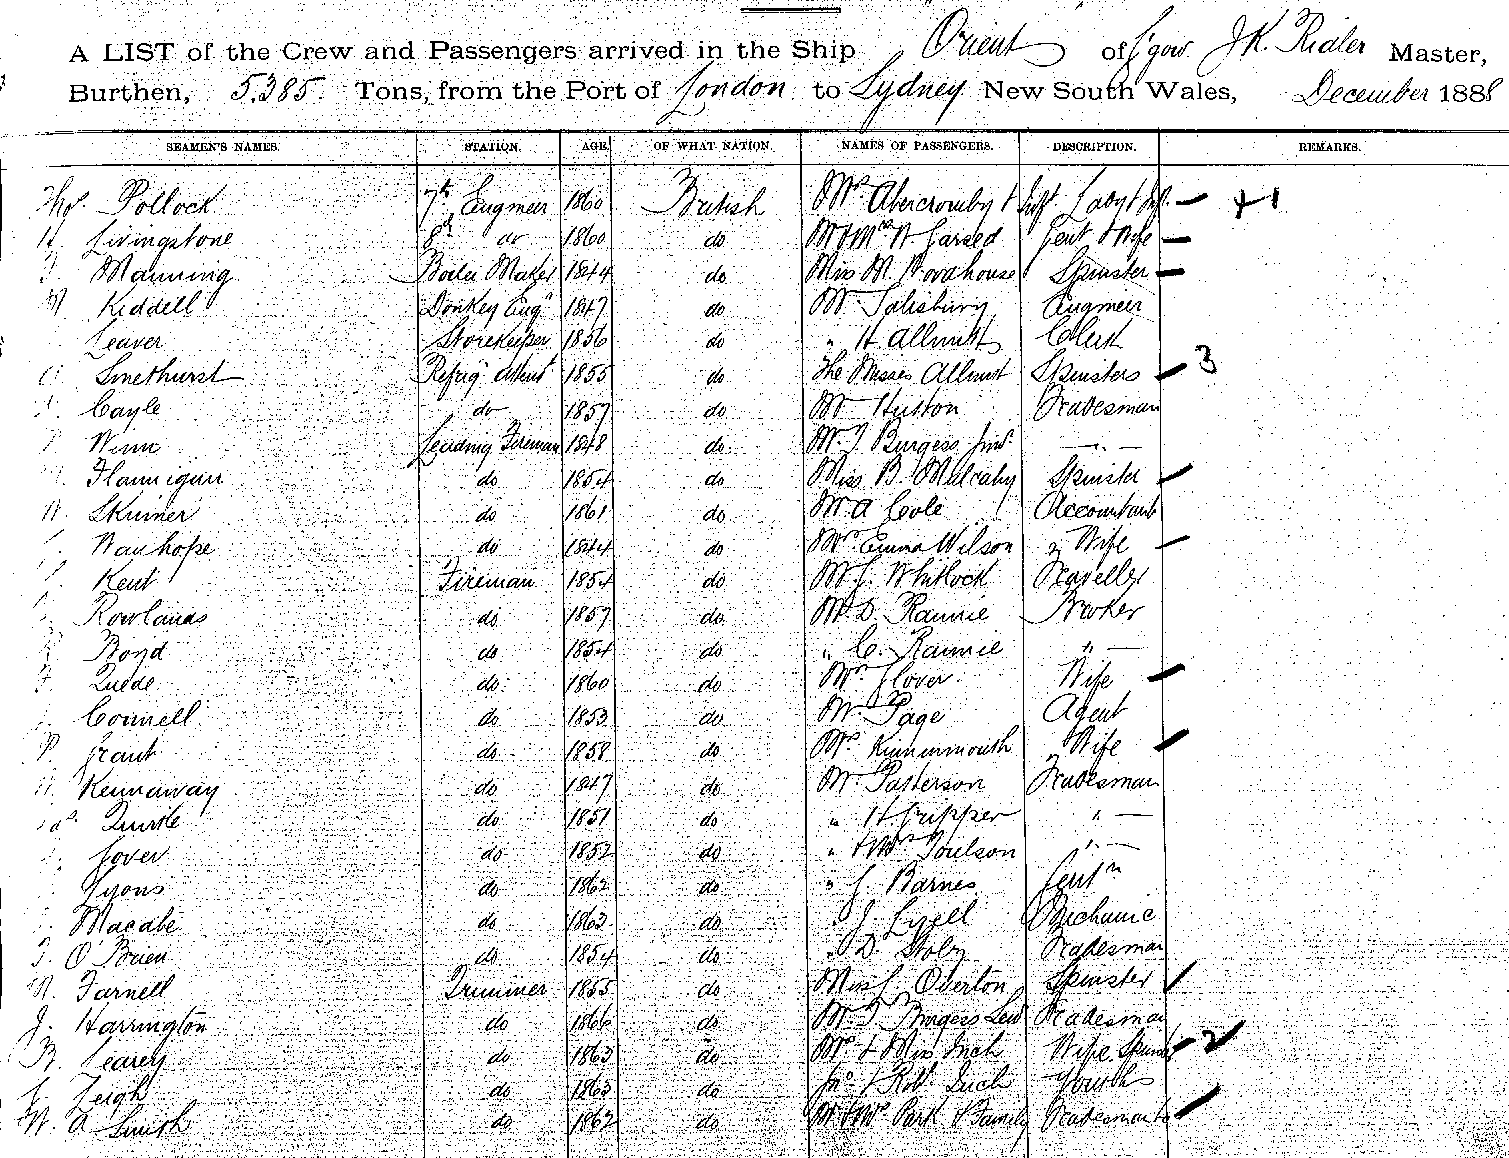 A LIST of the Crew and Passengers arrived in the Ship Orient of G'gow J K. Ridler Master,
Burthen, 5.385 Tons, from the Port of London to Sydney New South Wales, December 1888
SEAMEN'S NAMES. STATION. AGE OF WHAT NATION. NAMES OF PASSENGERS. DESCRIPTION. REMARKS.
Thos. Pollock 7th Engineer 1860 British Mrs Abercromby & Inft Lady & Inf. 1
H. Livingstone 8th do 1860 do Mr & Mrs W. Garsed Gent & Wife
Manning Boiler Maker 1844 do Miss M. Spinster
Kiddell Donkey Eng'r 1847 do Mr Salisbury Engineer
Leaver Storekeeper 1856 do " H Allmutt Clerk
Smethurst Refrig' Attent 1855 do The Misses Allmutt Spinsters 3
Cayle do 1857 do Mr Huston Tradesman
Winn Leading Fireman 1848 do Mr T Burgess Junr — " —
Flannigan do 1854 do Miss B. Mulcahy Spinster
Skinner do 1861 do Mr A Cole Accountant
Wauhope do 1844 do Mrs Emma Wilson Wife
Kent Fireman 1854 do Mr J. Whitlock Traveller
Rowlands do 1857 do Mr D. Rannie Broker
Boyd do 1854 do " C. Rannie " —
do 1860 do Mrs Glover Wife
Connell do 1853 do Mr Page Agent
P. Grant do 1858 do Mrs Kinninmouth Wife
Kennaway do 1847 do Mr Patterson Tradesman
Quirke do 1851 do " H Gripper " —
Gover do 1852 do " & Mrs Poulson " —
Lyons do 1862 do " J. Barnes Gentn
Macabe do 1863 do " J. Lyell Mechanic
T. O'Brien do 1854 do " D. Tradesman
Farnell Trimmer 1855 do Miss Overton Spinster
J. Harrington do 1866 do Mr T Burgess Senr Tradesman
B. Learey do 1863 do Mrs & Miss Inch Wife Spinster 2
Leigh do 1863 do Jno & Robt Inch Youths
W. A Smith do 1862 do Mr & Mrs Park & Family Tradesman &c